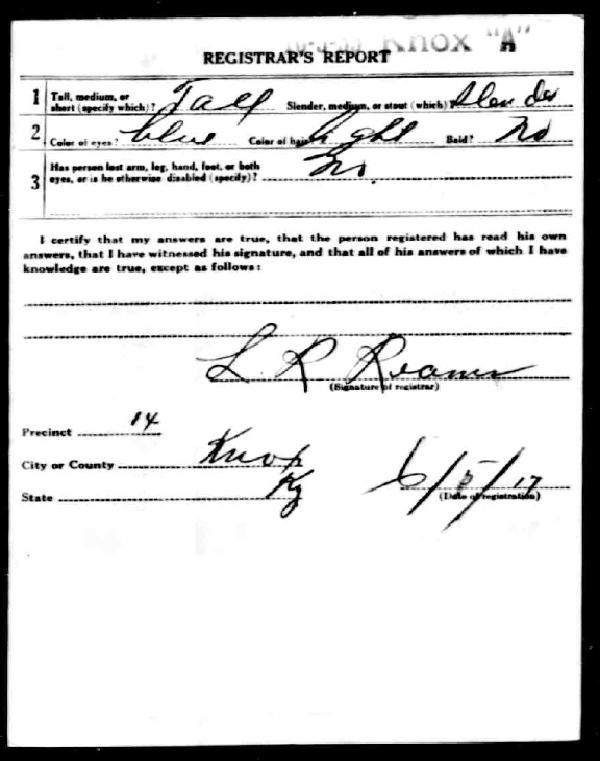 Knox "A"
REGISTRAR'S REPORT
1 Tall, medium, or short (specify which)? Tall Slender, medium, or stout (which)? slender
2 Color of eyes? blue Color of hair? light Bald? No
3 Has person lost arm, leg, hand, foot, or both
eyes, or is he otherwise disabled (specify)? No.
I certify that my answers are true, that the person registered has read his own
answers, that I have witnessed his signature, and that all of his answers of which I have
knowledge are true, except as follows:
L. R
(Signature of registrar)
Precinct 14
City or County Knox
State Ky 6/5/17
(Date of registration)